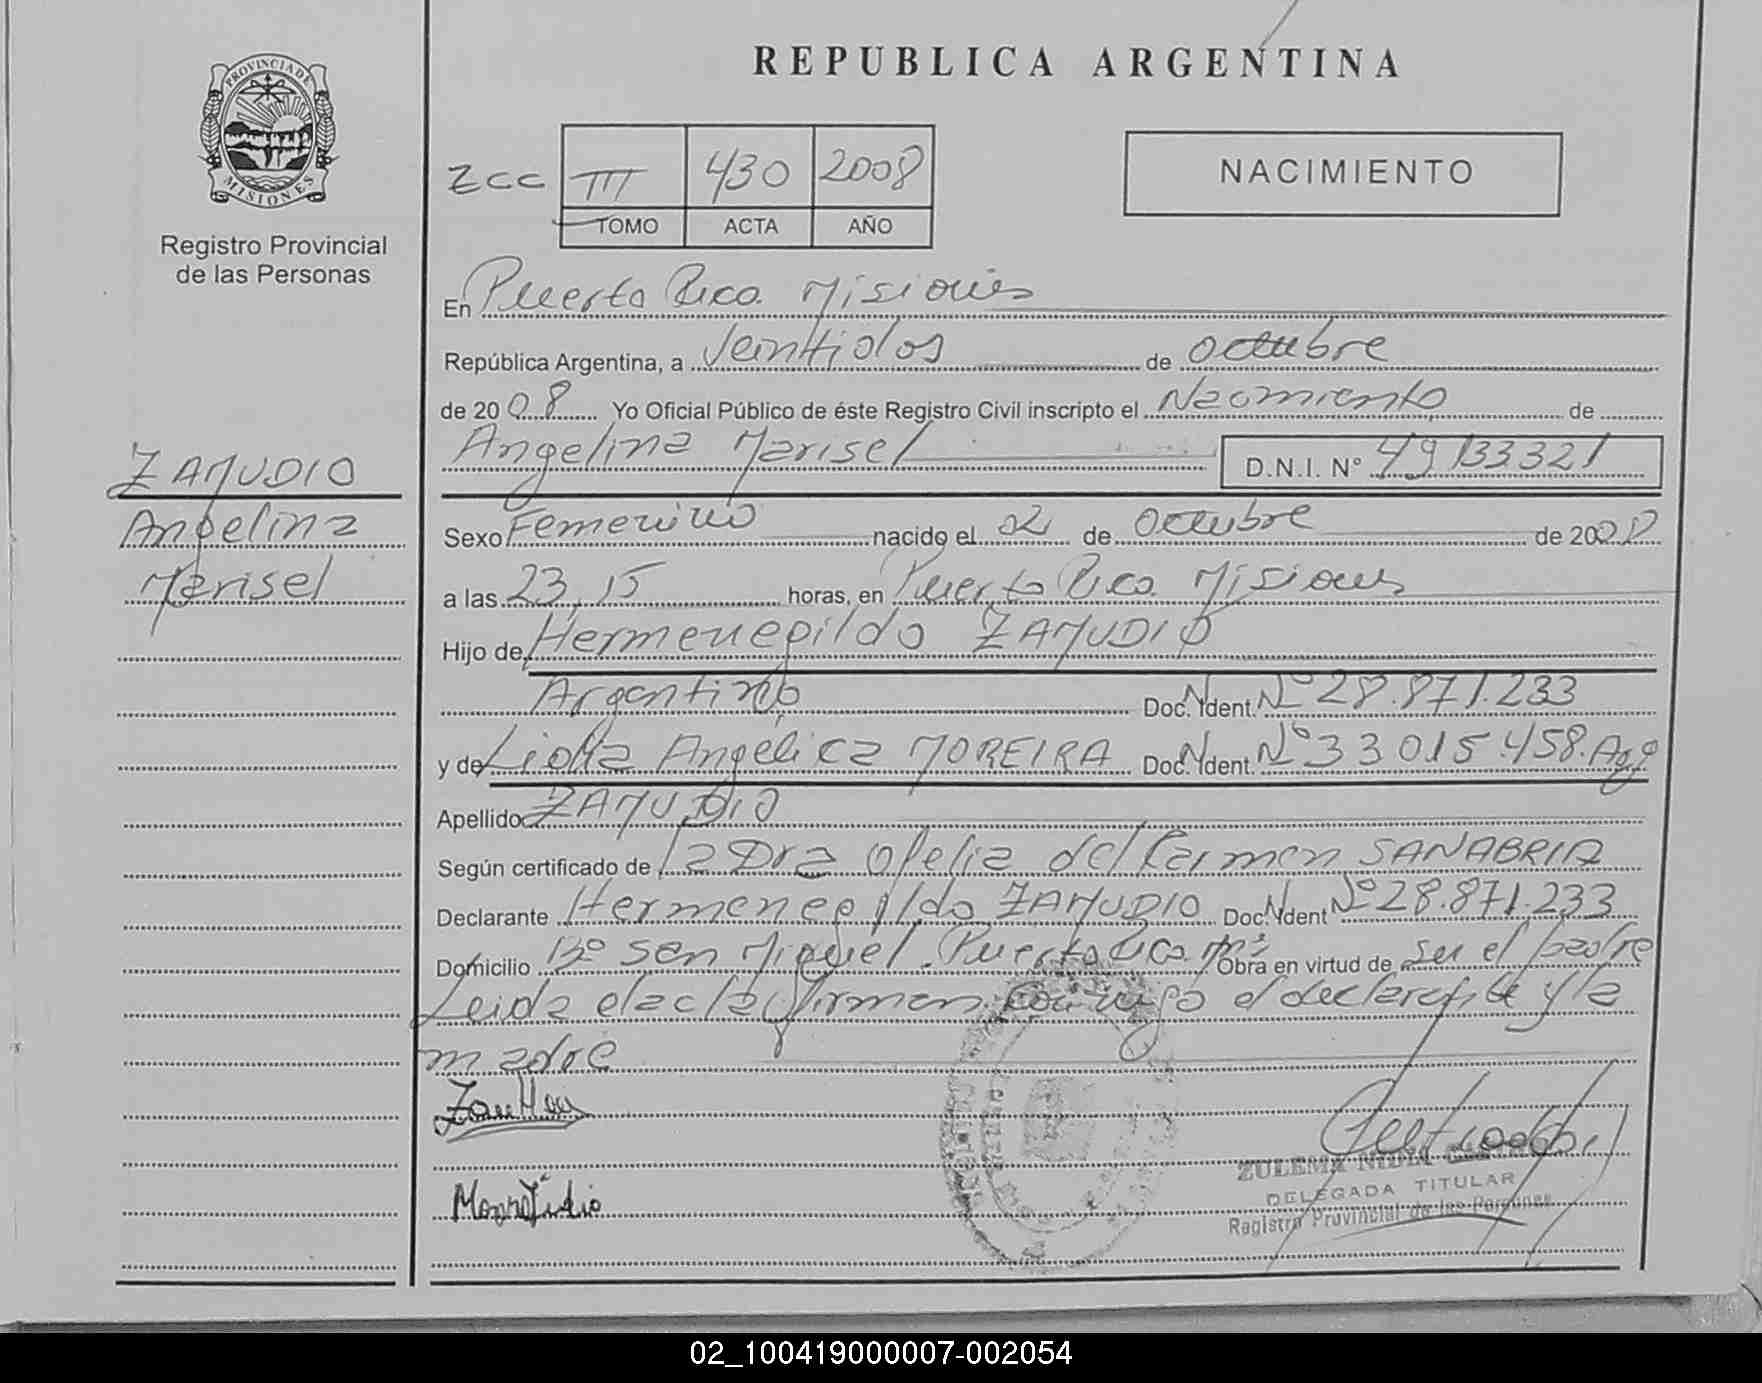 REPUBLICA ARGENTINA
PROVINCIA DE
MISIONES
Registro Provincial
de las Personas
ZCC III 430 2008
TOMO ACTA AÑO
NACIMIENTO
En Puerto Rico. Misiones
República Argentina, a Veintidos de octubre
de 2008 Yo Oficial Público de éste Registro Civil inscripto el Nacimiento de
Angelina Marisel D.N.I. Nº 49133321
ZAMUDIO
Angelina
Marisel
Sexo Femenino nacido el 02 de Octubre de 200
a las 23,15 horas, en Puerto Rico. Misiones
Hijo de Hermenegildo ZAMUDIO
Argentino Doc. Ident. Nº 28.871.233
y de Angélica MOREIRA Doc. Ident. Nº 33015.458. Arg
Apellido ZAMUDIO
Según certificado de la Dra Ofelia del Carmen SANABRIA
Declarante Hermenegildo ZAMUDIO Doc. Ident Nº 28.871.233
Domicilio Bº San Miguel. Puerto Rico. Obra en virtud de ser el padre
Leida el acta firman conmigo el declarante y la
madre
ZULEMA NIDIA
DELEGADA TITULAR
Registro Provincial de las Personas
02_100419000007-002054